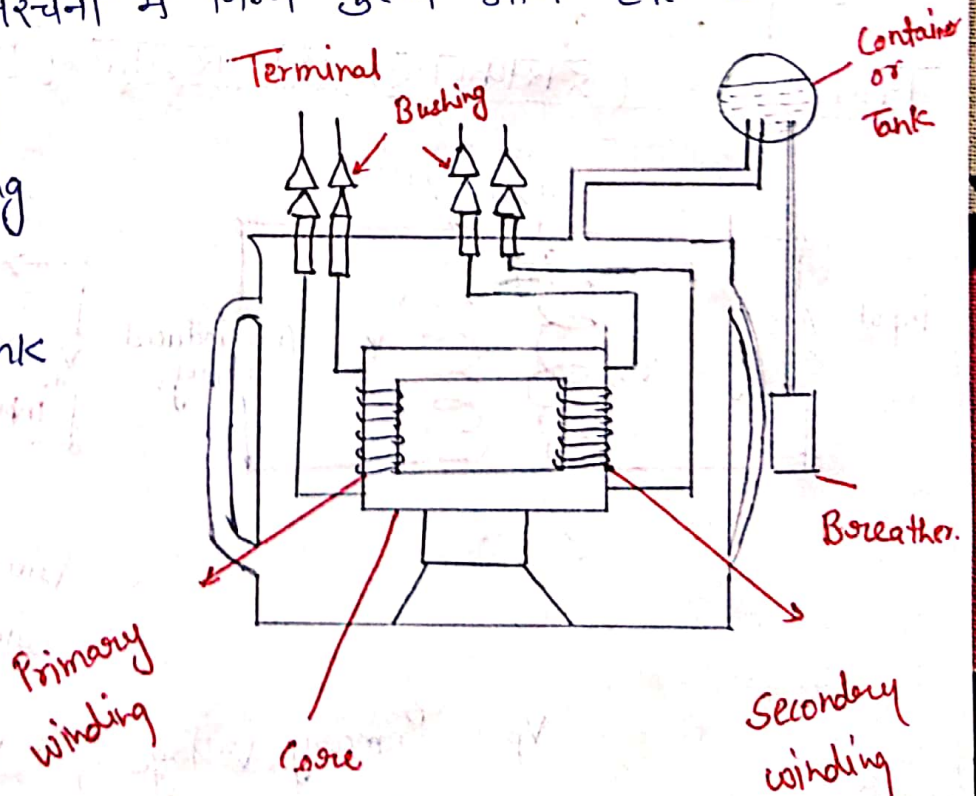 में निम्न
Terminal
Bushing
Container
or
Tank
Breather.
Primary
winding
Core
Secondary
winding